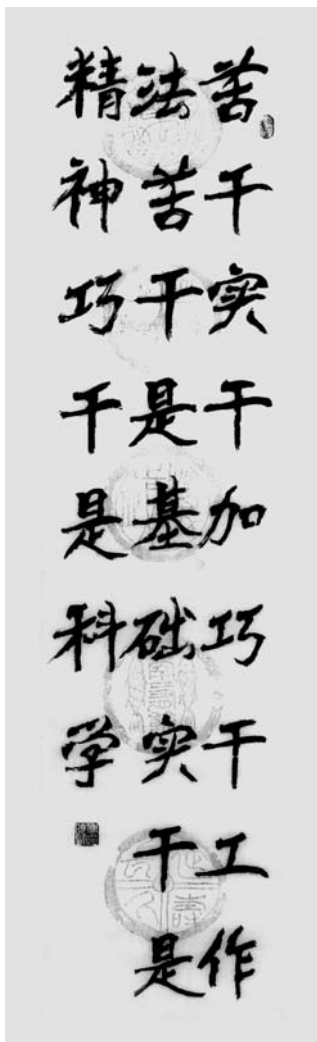 苦干实干加巧干工作
法苦干是基础实干是
精神巧干是科学